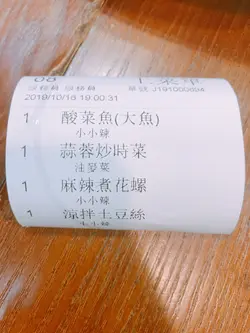 上菜單
單號 J191000694
2019/10/16 19:00:31
1 酸菜魚(大魚)
小小辣
1 蒜蓉炒時菜
油麥菜
1 麻辣煮花螺
小小辣
1 涼拌土豆絲
小小辣